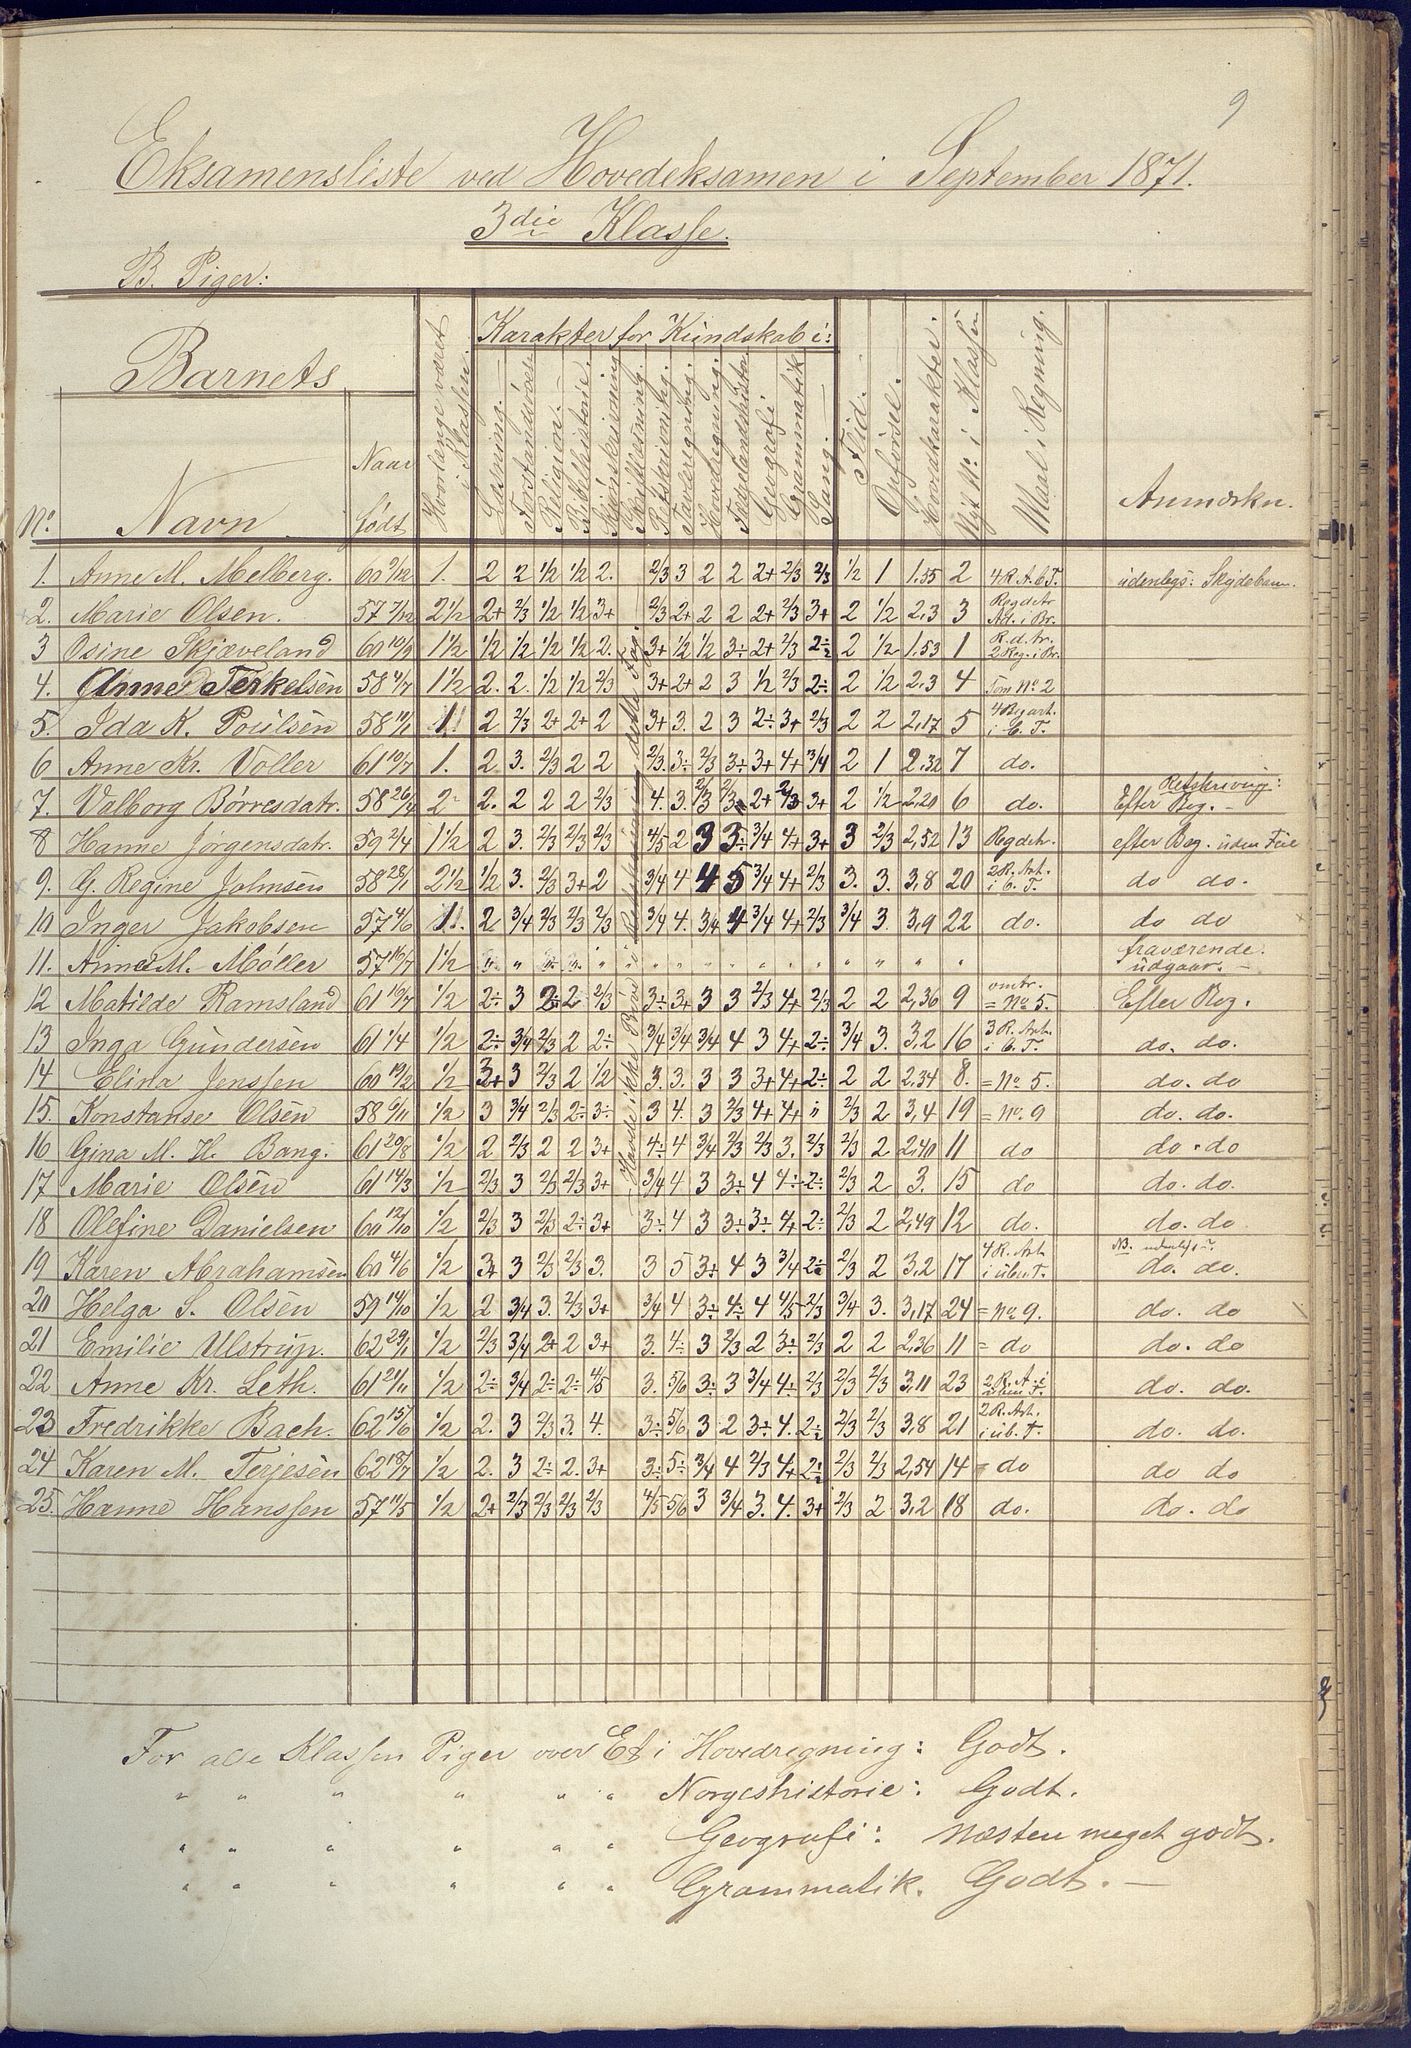 9
Eksamensliste ved Hovedeksamen i September 1871.
3die Klasse.
B. Piger:
Barnets
Karakter for Kundskab i:
No. Navn
Naar født
Hvorlænge været i Klassen.
Læsning.
Forstandsøvelse
Religion.
Bibelhistorie.
Skjønskrivning
Retskrivning.
Tavleregning.
Hovedregning.
Fædrelandshistorie
Geografi
Grammatik
Sang.
Flid.
Opførsel.
Hovedkarakter.
Nyt No. i Klassen
Maal i Regning.
Anmærkn.
Havde ikke Prøve i dette Fag.
1. Anne M. Melberg. 60 9/12 1. 2 2 1/2 1/2 2. 2/3 3 2 2 2+ 2/3 2/3 1/2 1 1.55 2 4 R. A. b T. udenlegs: Skydebane.
2. Marie Olsen. 57 7/12 2 1/2 2+ 2/3 1/2 1/2 3+ 2/3 2+ 2 2 2+ 2/3 3+ 2 1/2 2,3 3 Regdetr Ad. i Br.
3 Osine Skjæveland 60 10/9 1 1/2 1/2 1/2 1/2 1/2 2. 3+ 1/2 1/2 3÷ 2+ 2/3 2÷ 2 1/2 1.53 1 R. d. tr. 2 Reg. i Br.
4. Anne Terkelsen 58 4/7 1 1/2 2. 2. 1/2 1/2 2/3 3+ 2+ 2 3 1/2 2/3 2÷ 2 1/2 2,3 4 som No 2
5. Ida K. Poulsen 58 19/1 1. 2 2/3 2+ 2+ 2 3+ 3. 2 3 2÷ 3+ 2/3 2 2 2,17 5 4 Reg art. i b. T.
6 Anne Kr. Voller 61 10/7 1. 2 3. 2/3 2 2 2/3. 3÷ 2/3 3÷ 3+ 4+ 3/4 2 1 2,32 7 do.
7. Valborg Børresdatr. 58 26/4 2 2. 2 2 2 2/3 4. 3. 2/3 2/3 2+ 2/3 3+ 2 1/2 2,20 6 do. Efter Reg. Retskrivning:
8 Hanne Jørgensdatr. 59 2/4 1 1/2 2 3. 2/3 2/3 2/3 4/5 2 3 3÷ 3/4 4+ 3+ 3 2/3 2,52 13 Regdetr. efter Beg. uden Feil
9. G. Regine Johnsen 58 28/1 2 1/2 1/2 3. 2/3 3+ 2 3/4 4 4 5 3/4 4+ 2/3 3. 3. 3,8 20 2 R. Art. i b. T. do do.
10 Inger Jakobsen 57 4/6 1. 2 3/4 2/3 2/3 2/3 3/4 4. 3/4 4 3/4 4+ 2/3 3/4 3. 3,9 22 do. do do
11. Anne M. Møller 57 16/7 1 1/2 " " " " " " " " " " " " " " " " fraværende. udgaar. -
12 Matilde Ramsland 61 10/7 1/2 2÷ 3 2÷ 2 2/3 3÷ 3+ 3 3 2/3 4+ 2/3 2 2 2,36 9 omtr. = No 5. Efter Beg.
13 Inga Gundersen 61 1/4 1/2 2÷ 3/4 2/3 2 2÷ 3/4 3/4 3/4 4 3 4+ 2÷ 3/4 3. 3,2 16 3 R. Art. i b. T. do. do.
14 Elina Jenssen 60 19/2 1/2 3+ 3 2/3 2 1/2 3. 3. 3 3 3+ 4+ 2÷ 2 2 2,34 8. = No 5. do. do
15. Konstanse Olsen 58 6/11 1/2 3 3/4 2/3 2÷ 3÷ 3 4. 3 2/3 4+ 4+ " 2/3 2 3,4 19 = no. 9 do. do.
16 Gina M. H. Bang. 61 20/8 1/2 2 2/3 2 2 3+ 4÷ 4 3/4 2/3 2/3 3. 2/3 2/3 2 2,40 11 do do. do
17 Marie Olsen 61 14/3 1/2 2/3 3 2/3 2/3 3+ 3/4 4 3 3÷ 4 4÷ 2÷ 2/3 2 3. 15 do do. do.
18 Olefine Danielsen 60 12/10 1/2 2/3 3 2/3 2÷ 3+ 3÷ 4 3 3÷ 3÷ 4+ 2÷ 2/3 2 2,49 12 do. do. do
19 Karen Abrahamsen 60 4/6 1/2 3+ 3 2/3 2/3 3. 3 5 3+ 4 3 3/4 2÷ 2/3 2 3,2 17 4 R. Art. i übe T. NB. do. do.
20 Helga S. Olsen 59 14/10 1/2 2 3/4 3. 2/3 3+ 3/4 4 3÷ 4÷ 4 4/5 2/3 3/4 3. 3,17 24 = no 9. do. do
21 Emilie Ulstrup. 62 29/1 1/2 2/3 3/4 2+ 2 3+ 3. 4÷ 3 2/3 2 3÷ 2/3 2 2 2,36 11 = do do. do
22 Anne Kr. Leth. 61 21/11 1/2 2÷ 3/4 2÷ 2÷ 4/5 3. 5/6 3÷ 3 3/4 4÷ 2/3 2/3 2/3 3,11 23 2 R. A. i do. do.
23 Fredrikke Bach. 62 15/6 1/2 2. 3 2/3 3. 4. 3÷ 5/6 3 2 3+ 4. 2÷ 2/3 2/3 3,8 21 2 R. Art. i üb. T. do. do.
24 Karen M. Terjesen 62 18/7 1/2 2. 3 2÷ 2. 3+ 3÷ 5÷ 3/4 4 2/3 4+ 2÷ 2/3 2/3 2,54 14 = do do do
25. Hanne Hanssen 57 11/5 1/2 2+ 2/3 2/3 2/3 2/3 4/5 5/6 3 3/4 3. 4. 3+ 2/3 2 3,2 18 do. do. do
For alle Klassen Piger over Et i Hovedregning: Godt.
" " " " " " Norgeshistorie: Godt.
" " " " " " Geografi: Næsten meget godt.
" " " " " " Grammatik. Godt. -